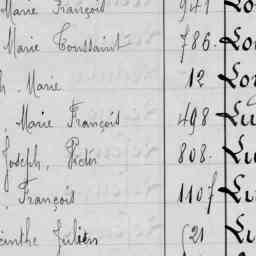 Marie François 941 Lo
Marie Toussaint 786. Lo
h. Marie 12 Lo
, Marie François 498 Lu
Joseph, Victor 808. Lu
, François 1107 Lu
cinthe Julien 621 Lu